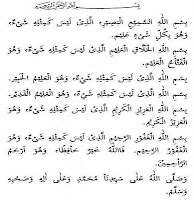 بِسْمِ اللَّهِ الرَّحْمٰنِ الرَّحِيْمِ
بِسْمِ اللَّهِ السَّمِيْعِ الْبَصِيْرِ، الَّذِيْ لَيْسَ كَمِثْلِهِ شَيْءٌ،
وَهُوَ بِكُلِّ شَيْءٍ عَلِيْمٌ.
بِسْمِ اللَّهِ الْخَلَّاقِ الْعَلِيْمِ الَّذِيْ لَيْسَ كَمِثْلِهِ شَيْءٌ، وَهُوَ
الْفَتَّاحُ الْعَلِيْمُ.
بِسْمِ اللَّهِ الَّذِيْ لَيْسَ كَمِثْلِهِ شَيْءٌ، وَهُوَ الْعَلِيْمُ الْقَدِيْرُ.
بِسْمِ اللَّهِ الْعَزِيْزِ الْكَرِيْمِ الَّذِيْ لَيْسَ كَمِثْلِهِ شَيْءٌ،
وَهُوَ الْعَزِيْزُ الْكَرِيْمُ.
بِسْمِ اللَّهِ الْغَفُوْرِ الرَّحِيْمِ الَّذِيْ لَيْسَ كَمِثْلِهِ شَيْءٌ، وَهُوَ
الْغَفُوْرُ الرَّحِيْمُ. فَاللَّهُ خَيْرٌ حَافِظًا، وَهُوَ أَرْحَمُ
الرَّاحِمِيْنَ.
وَصَلَّى اللَّهُ عَلَى سَيِّدِنَا مُحَمَّدٍ وَعَلَى آلِهِ وَصَحْبِهِ
وَسَلَّمَ.